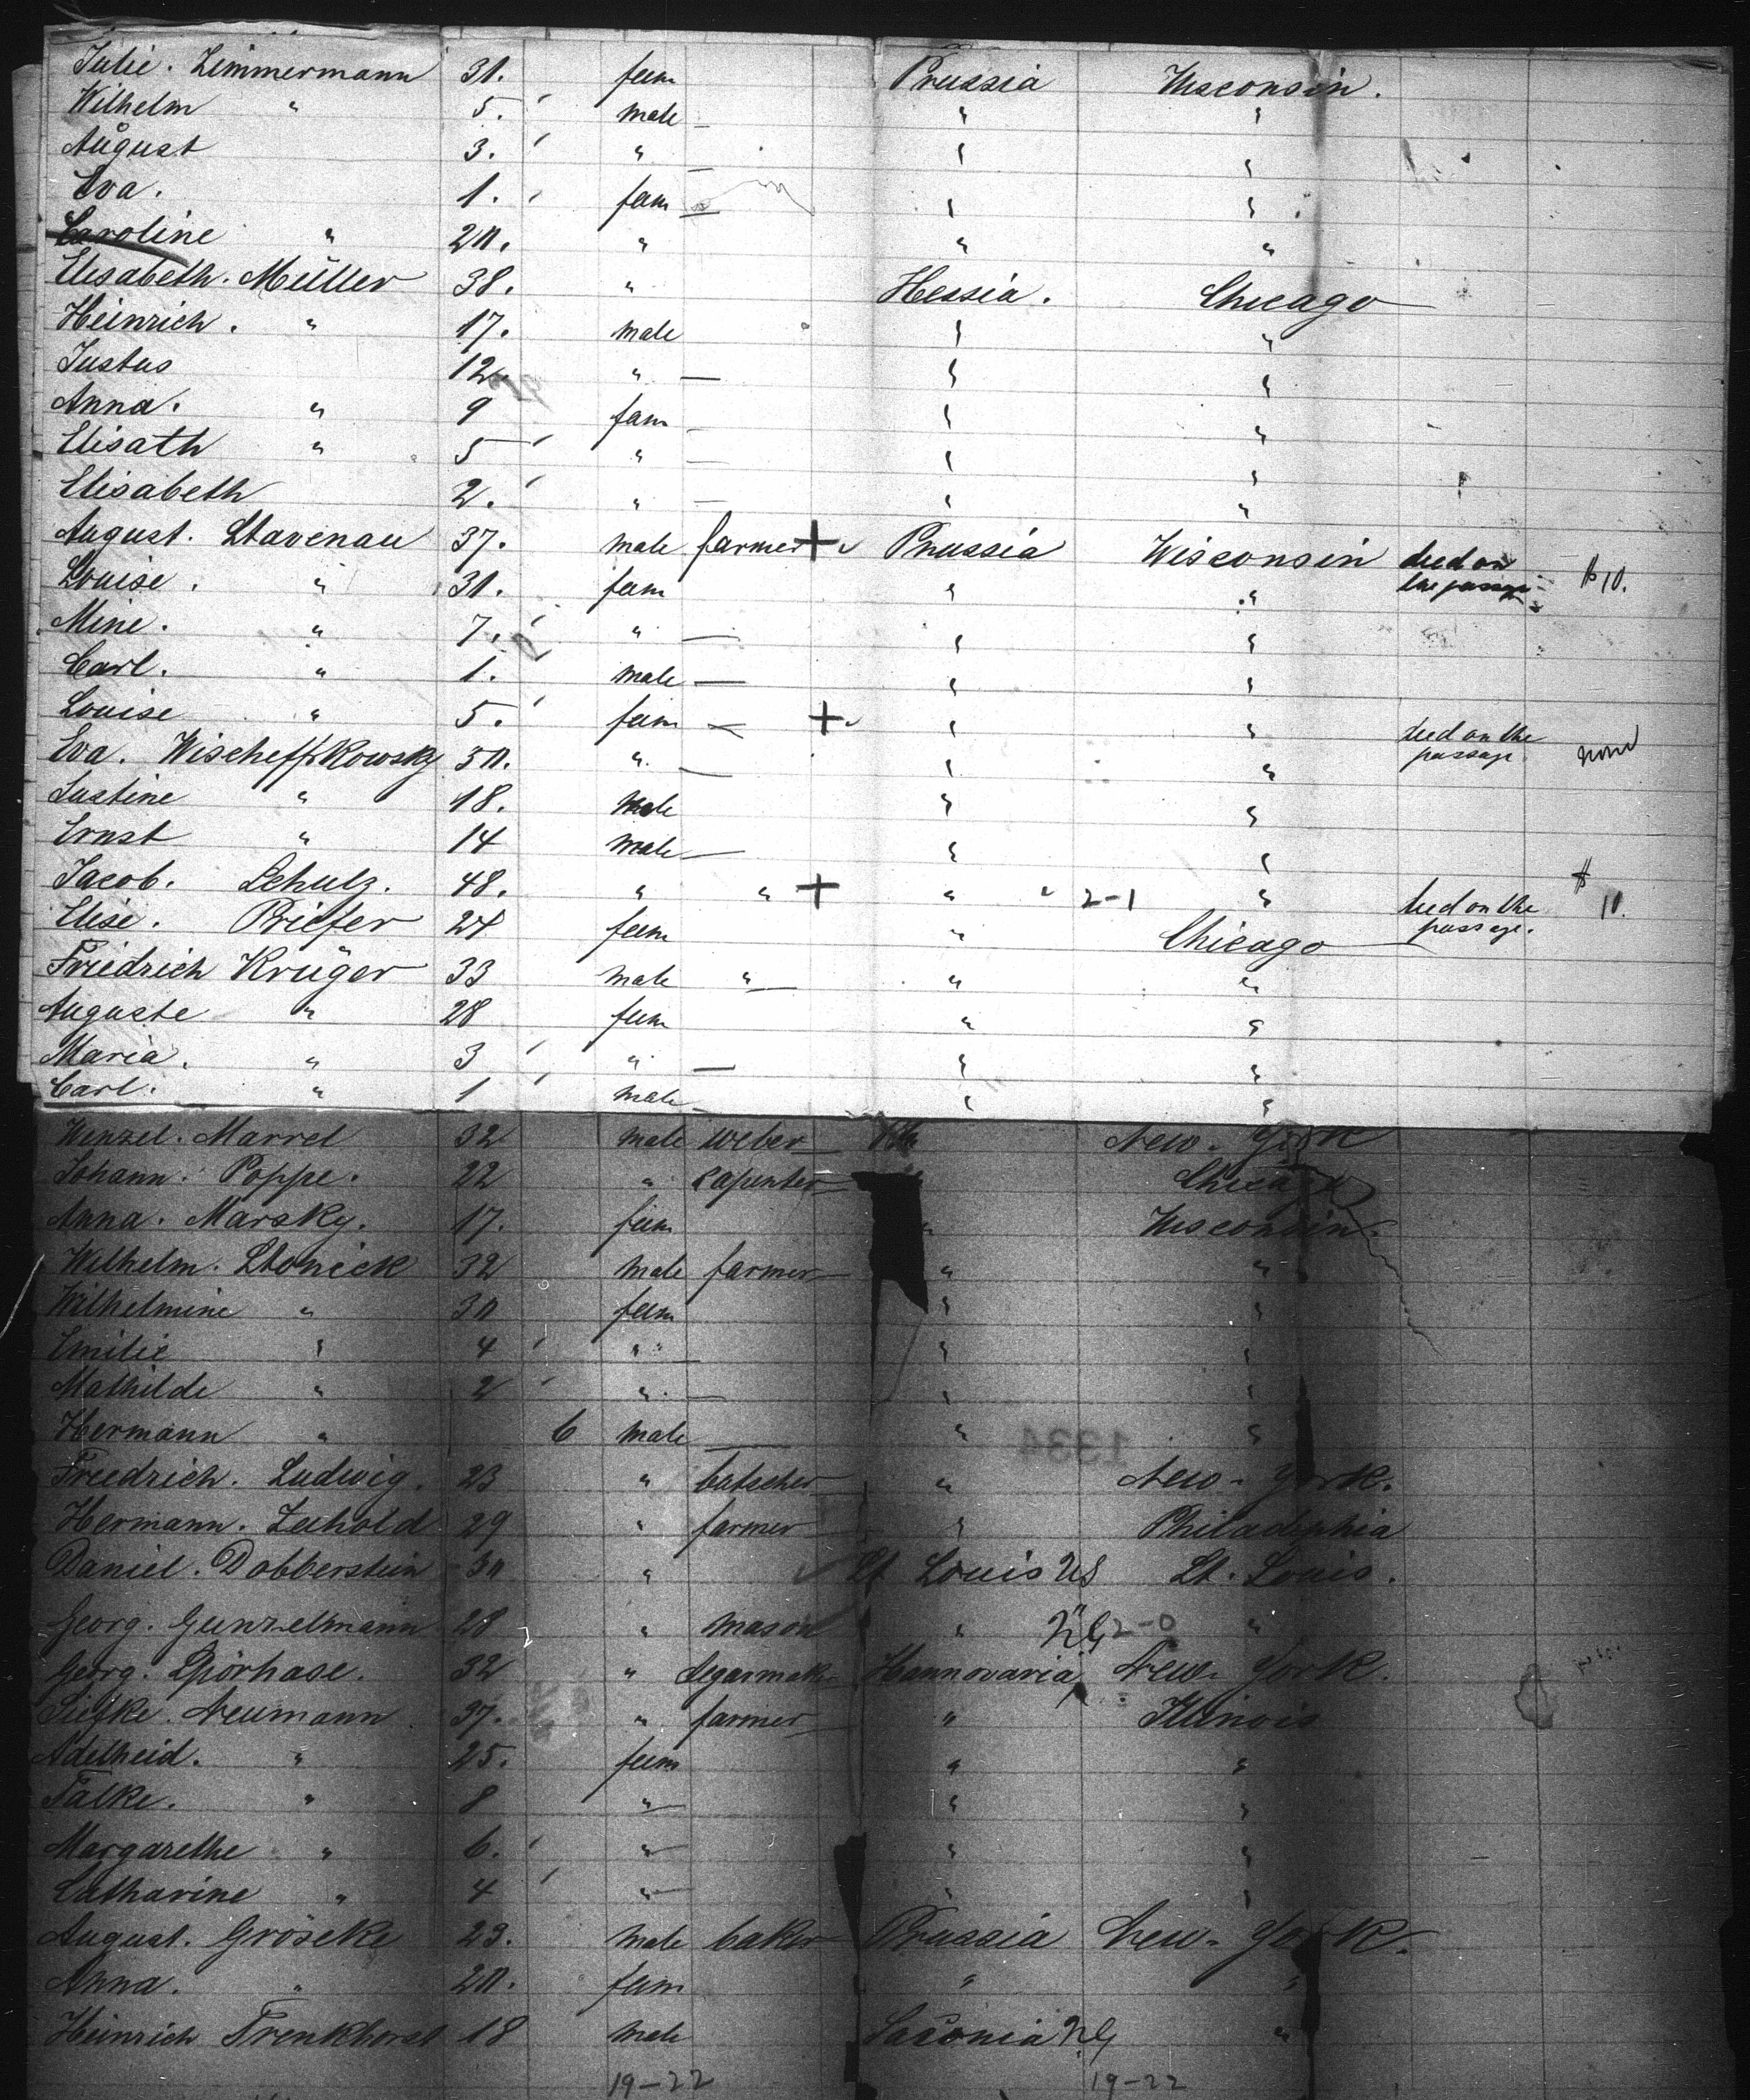 Julie. Zimmermann 31. fem Prussia Wisconsin.
Wilhelm " 5. male " "
August 3. " " "
Eva. 1. fem " "
Caroline " 20. " " "
Elisabeth. Müller 38. " Hessia. Chicago
Heinrich. " 17. male " "
Justus 12. " " "
Anna. " 9 fem " "
Elisath " 5 " " "
Elisabeth 2. " " "
August. Stavenau 37. male farmer + Prussia Wisconsin died on the passage $10.
Louise. " 31. fem " "
Mine. " 7. " " "
Carl. " 1. male " "
Louise " 5. fem + " " died on the passage none
Eva. Wischeffkowsky 50. " " "
Justine " 18. male " "
Ernst " 14 male " "
Jacob. Schulz. 48. " " + " 2-1 " died on the passage. $ 10.
Elise. Priefer 24 fem " Chicago
Friedrich Krüger 33 male " " "
Auguste " 28 fem " "
Maria. " 3 " " "
Carl. " 1 male " "
Wenzel. Marrel 32 male weber New-York
Johann. Poppe. 22 " capenter Chicago
Anna. Marsky. 17. fem " Wisconsin.
Wilhelm. Stonick 32 male farmer " "
Wilhelmine " 30 fem " "
Emilie " 4 " " "
Mathilde " 2 " " "
Hermann " 6 male " "
1334
Friedrich. Ludwig. 23 " butscher " New-York.
Hermann. Zechold 29 " farmer " Philadephia
Daniel. Dobberstein 30 " St Louis US St. Louis.
Georg. Gunzelmann 28 " mason " 2-0 "
Georg. Spörhase. 32 " segarmak Hannovaria New-York.
Siefke. Neumann 37. " farmer " Illinois
Adelheid. " 25. fem " "
Falke. " 8 " " "
Margarethe " 6. " " "
Catharine " 4 " " "
August. Gröseke 23. male baker Prussia New-York.
Anna. " 20. fem " "
Heinrich Trenkhorst 18 male Saxonia "
19-22 19-22